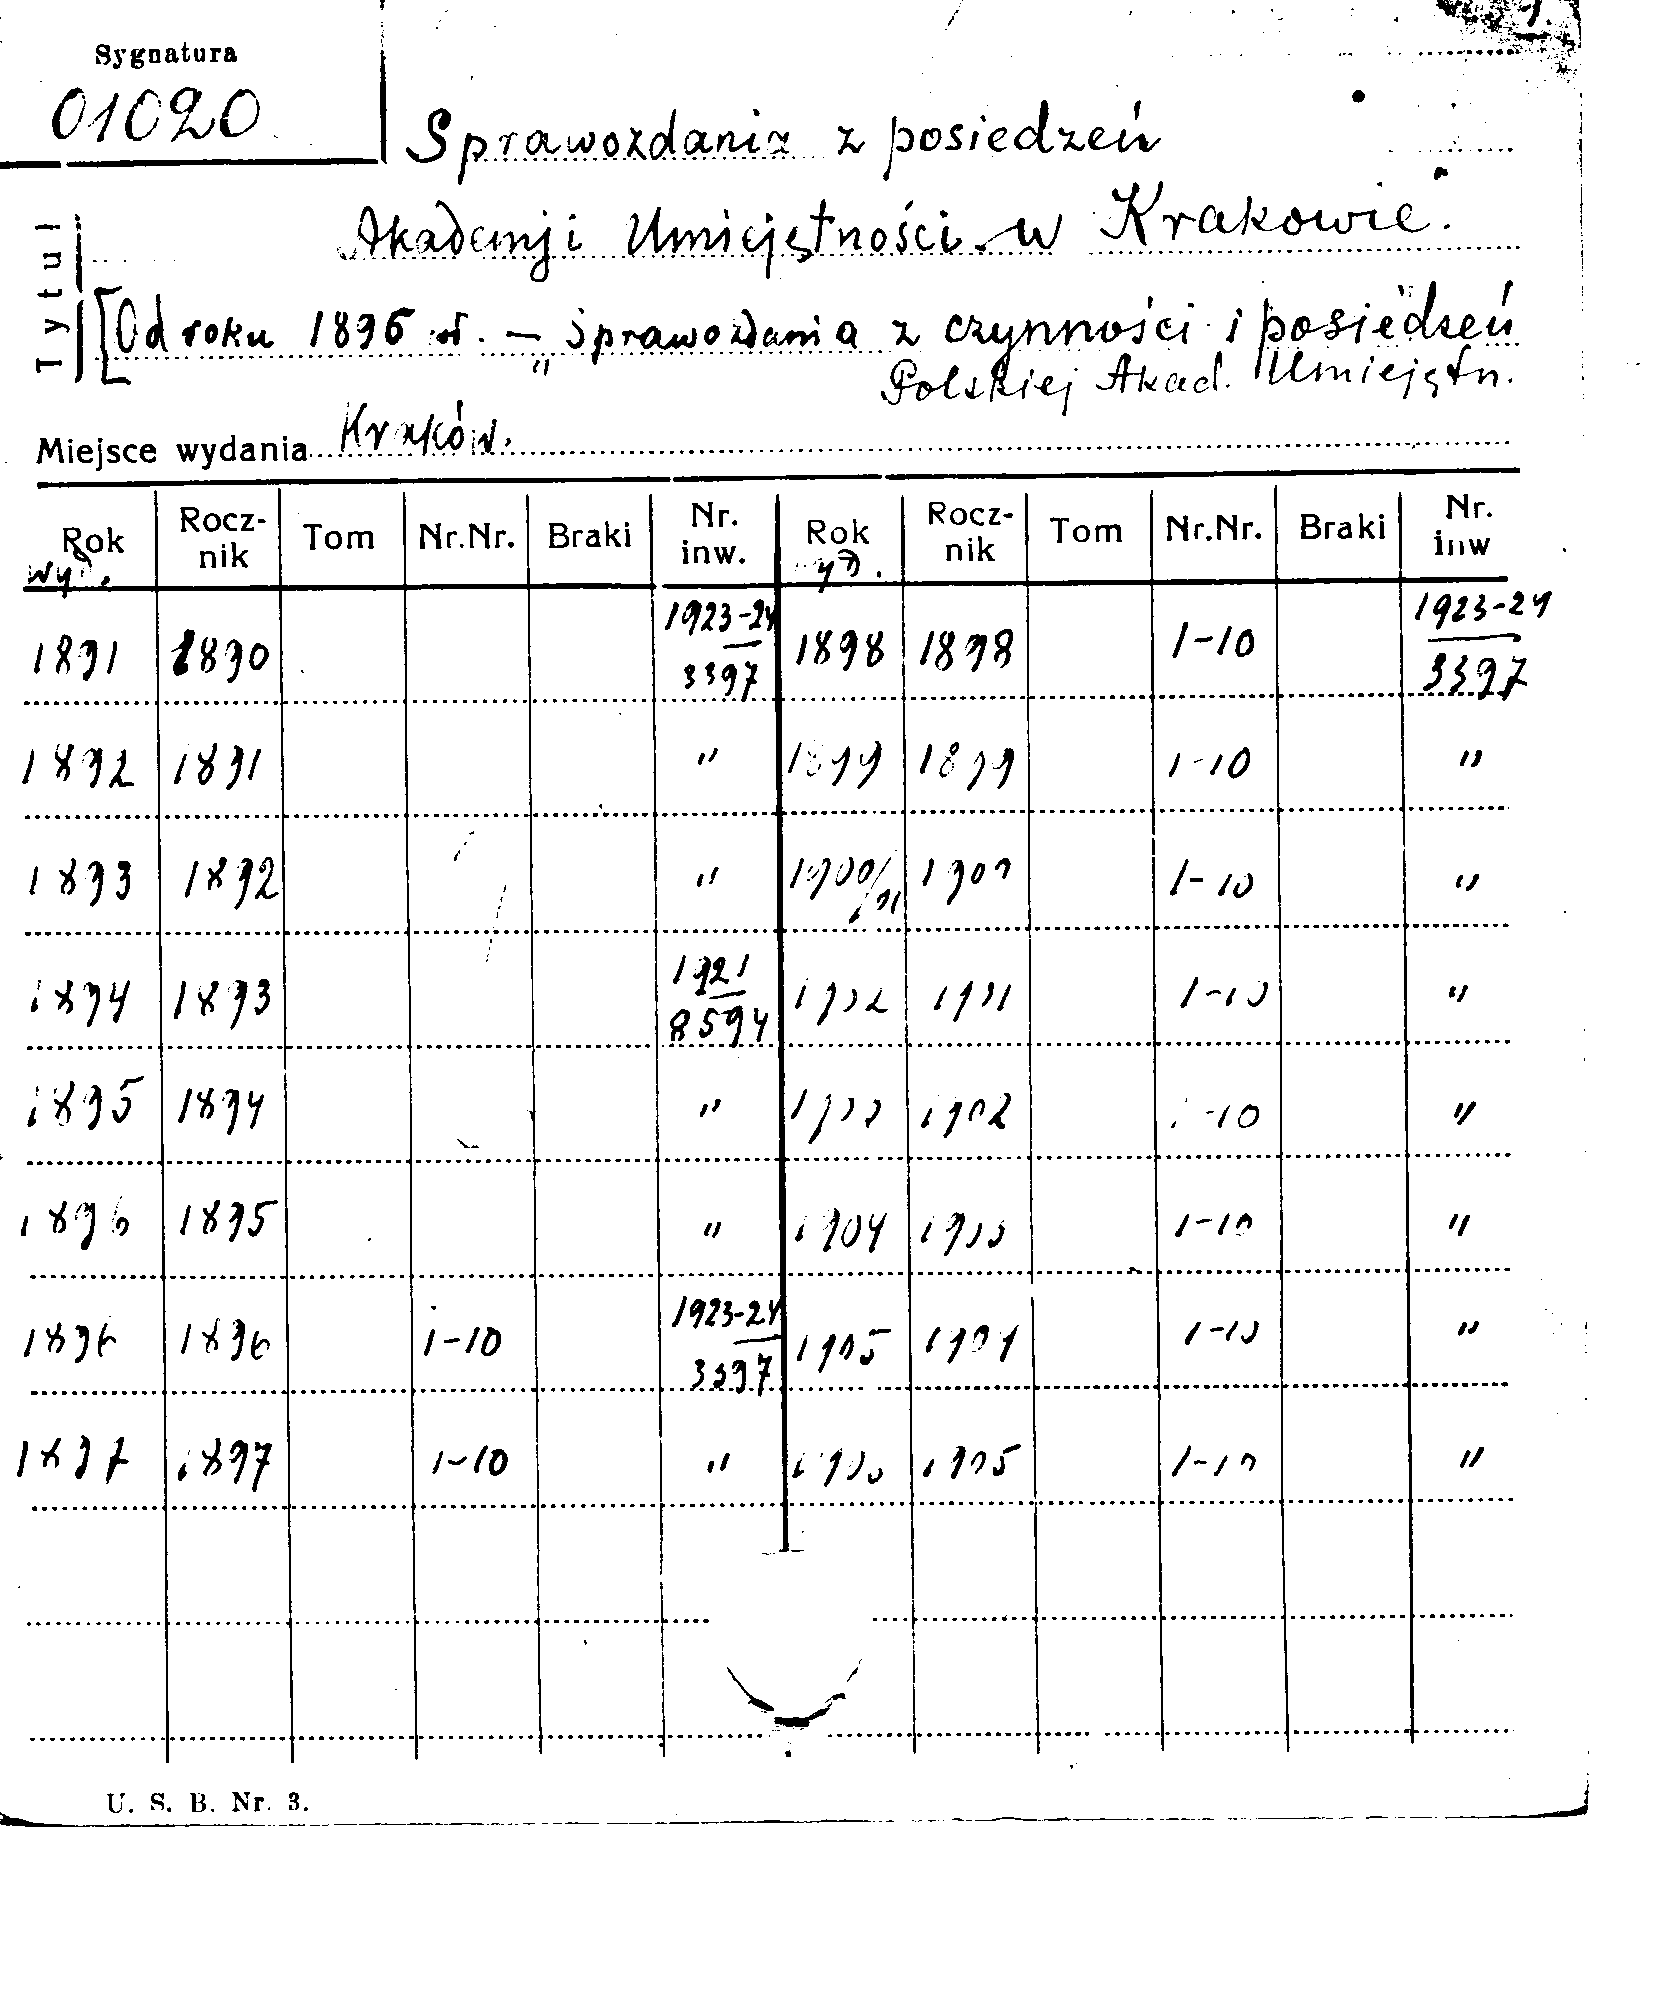 1
Sygnatura
01020
Sprawozdania z posiedzeń
Tytuł
Akademji Umiejętności w Krakowie.
[Od roku 1896 — „Sprawozdania z czynności i posiedzeń
Polskiej Akad. Umiejętn.
Miejsce wydania Kraków.
Rok wyd. Rocznik Tom Nr.Nr. Braki Nr. inw. Rok wyd. Rocznik Tom Nr.Nr. Braki Nr. inw
1891 1890 1923-24 3397 1898 1898 1-10 1923-24 3397
1892 1891 " 1899 1899 1-10 "
1893 1892 " 1900/01 1900 1-10 "
1894 1893 1921 8594 1902 1901 1-10 "
1895 1894 " 1903 1902 1-10 "
1896 1895 " 1904 1903 1-10 "
1896 1896 1-10 1923-24 3397 1905 1904 1-10 "
1897 1897 1-10 " 1905 1-10 "
U. S. B. Nr. 3.